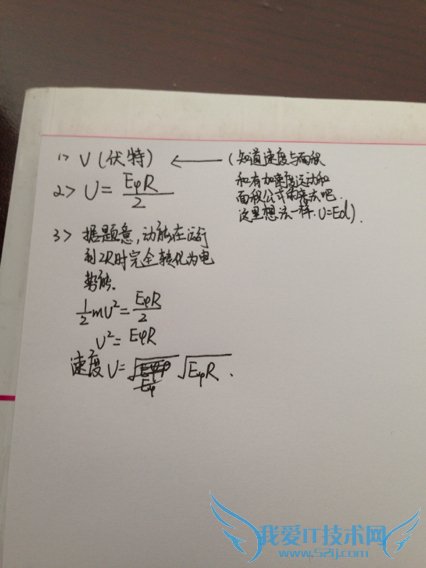 1> V (伏特) ← (知道速度与面积
和有加速度运动和
面积公式的算法吧
这里想法一样. U=Ed).
2> U = EφR/2
3> 据题意, 动能在运行
到2R时完全转化为电
势能.
½mU² = EφR/2
U² = EφR
速度 U = √EφR .
我爱IT技术网
www.52ij.com